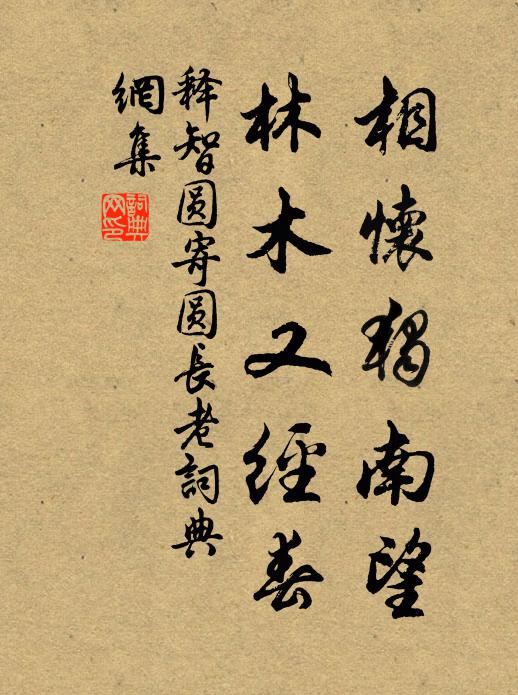 相懷獨南望
林木又經春
释智圆寄圆長老詞典
網集
詞典
网印